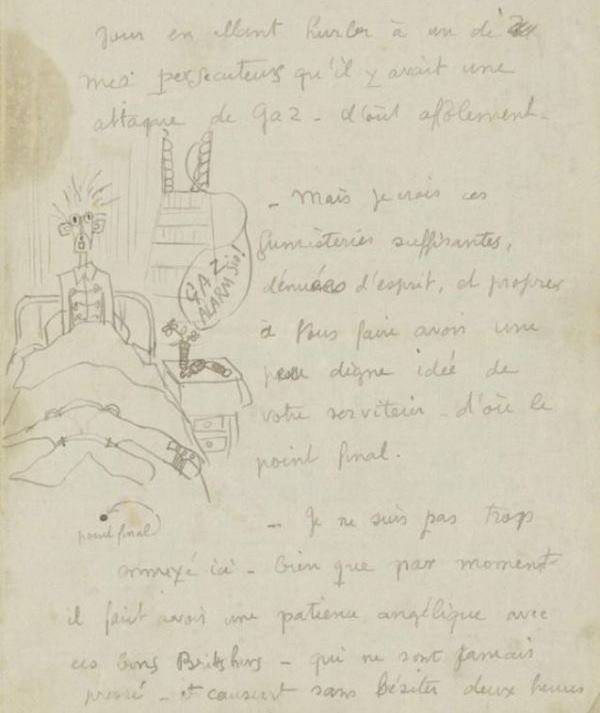 jour en allant hurler à un de
mes persecuteurs qu'il y avait une
attaque de gaz - d'où affolement -
- Mais je crois ces
fumisteries suffisantes,
dénuées d'esprit, et propres
à vous faire avoir une
peu digne idée de
votre serviteur - d'où le
point final.
GAZ
ALARM Sir!
point final
- Je ne suis pas trop
ici - bien que par moment
il faut avoir une patience angélique avec
ces bons Britishers - qui ne sont jamais
pressé - et causent sans hésiter deux heures